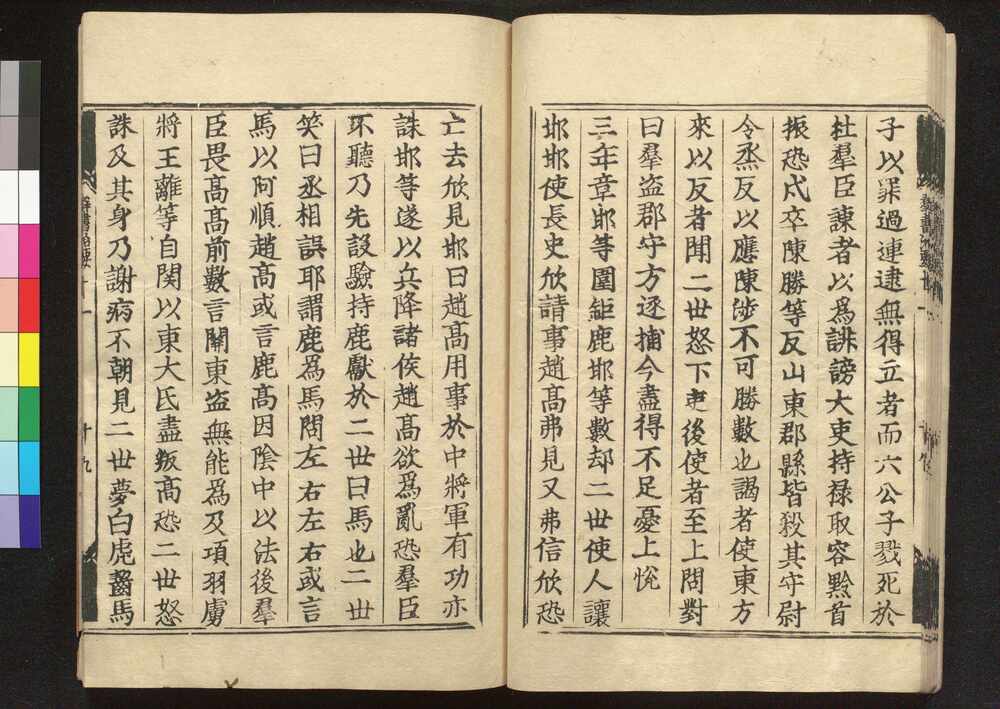 子以罪過連逮無得立者而六公子戮死於
杜羣臣諫者以爲誹謗大吏持禄取容黔首
振恐戍卒陳勝等反山東郡縣皆殺其守尉
令丞反以應陳渉不可勝數也謁者使東方
來以反者聞二世怒下吏後使者至上問對
曰羣盗郡守方逐捕今盡得不足憂上悦
三年章邯等圍鉅鹿邯等數却二世使人讓
邯邯使長史欣請事趙髙弗見又弗信欣恐
亡去欣見邯曰趙髙用事於中將軍有功亦
誅邯等遂以兵降諸侯趙髙欲爲亂恐羣臣
不聽乃先設驗持鹿獻於二世曰馬也二世
笑曰丞相誤耶謂鹿爲馬問左右左右或言
馬以阿順趙髙或言鹿髙因陰中以法後羣
臣畏髙髙前數言關東盗無能爲及項羽虜
將王離等自関以東大氐盡叛髙恐二世怒
誅及其身乃謝病不朝見二世夢白虎齧馬
羣書治要十一
十九